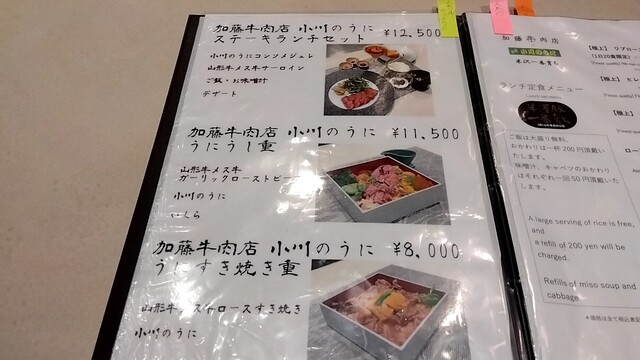 加藤牛肉店 小川のうに
ステーキランチセット ¥12,500
小川のうにコンソメジュレ
山形牛メス牛サーロイン
ご飯・お味噌汁
デザート
加藤牛肉店 小川のうに ¥11,500
うにうし重
山形牛メス牛
ガーリックローストビーフ
小川のうに
いくら
加藤牛肉店 小川のうに ¥8,000
うにすき焼き重
山形牛メス牛ロースすき焼き
小川のうに
加藤牛肉店
米沢一番育ち
ランチ定食メニュー
ご飯は大盛り無料、
おかわりは一杯200円頂戴い
たします。
味噌汁、キャベツのおかわり
はそれぞれ一回50円頂戴いた
します。
A large serving of rice is free,
and
a refill of 200 yen will be
charged.
Refills of miso soup and
cabbage
【極上】
【極上】ヒレ
【極上】